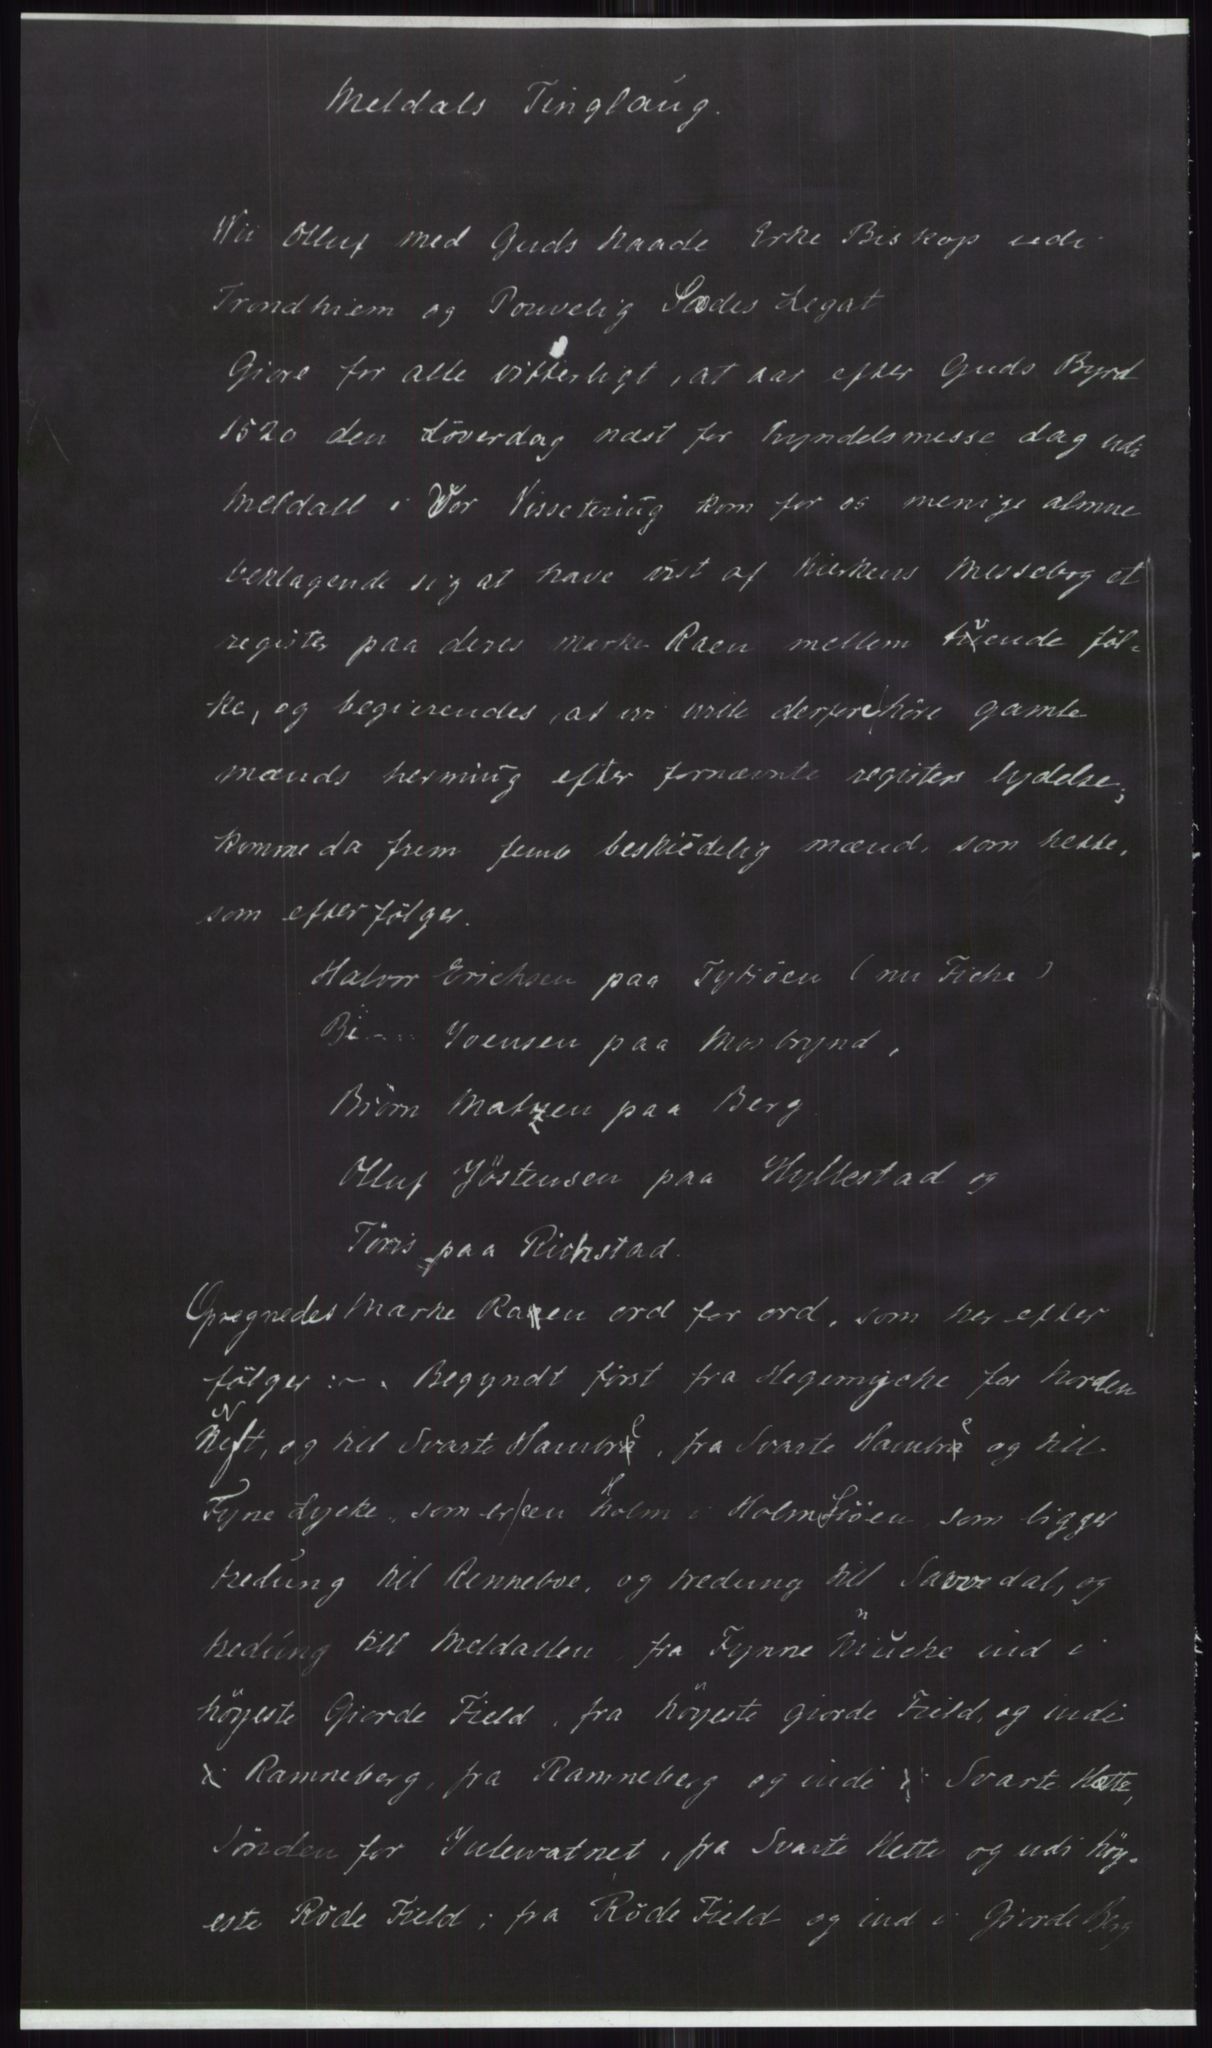 Meldals Tinglaug.
Wii Olluf med Guds Naade Erke Biskop udi
Trondhiem og Pouvelig Sædes Legat
Giøre for alle vitterligt, at aar efter Guds Byrd
1520 den Löverdag næst for Kyndelsmesse dag udi
Meldall i Vor Vissetering kom for os menige almue
beklagende sig at have vist af Kierkens Messebog et
register paa deres Marke Raen mellem tvende föl-
ke, og begierendes, at vi ville derfore höre gamle
mænds herming efter fornævnte registers lydelse;
komme da frem femb beskiedelig mænd, som hette,
som efter fölger.
Halvor Erichsen paa Tyfiöen (nu Fiche)
Bi... Joensen paa Mosbrynd,
Biörn Matzen paa Berg
Olluf Jöstensen paa Hyllestad og
Töris paa Richstad.
Opregnedes Marke Raen ord for ord, som her efter
fölger :-. Begyndt först fra Hegemyche for Norden
Nyft, og till Svarte Hambre, fra Svarte Hambre og till
Fyne Lycke, som er en Holm i Holmsiöen som ligger
tredung til Renneboe, og tredung till Savvedal, og
tredung till Meldallen, fra Fynne niuche ind i
höyeste Giorde Field, fra höyeste giorde Field, og indi
Ramneberg, fra Ramneberg og indi Svarte Hette,
Sönden for Julevatnet, fra Svarte Hette og udi höy-
este Röde Field; fra Röde Field og ind i Giorde Berg